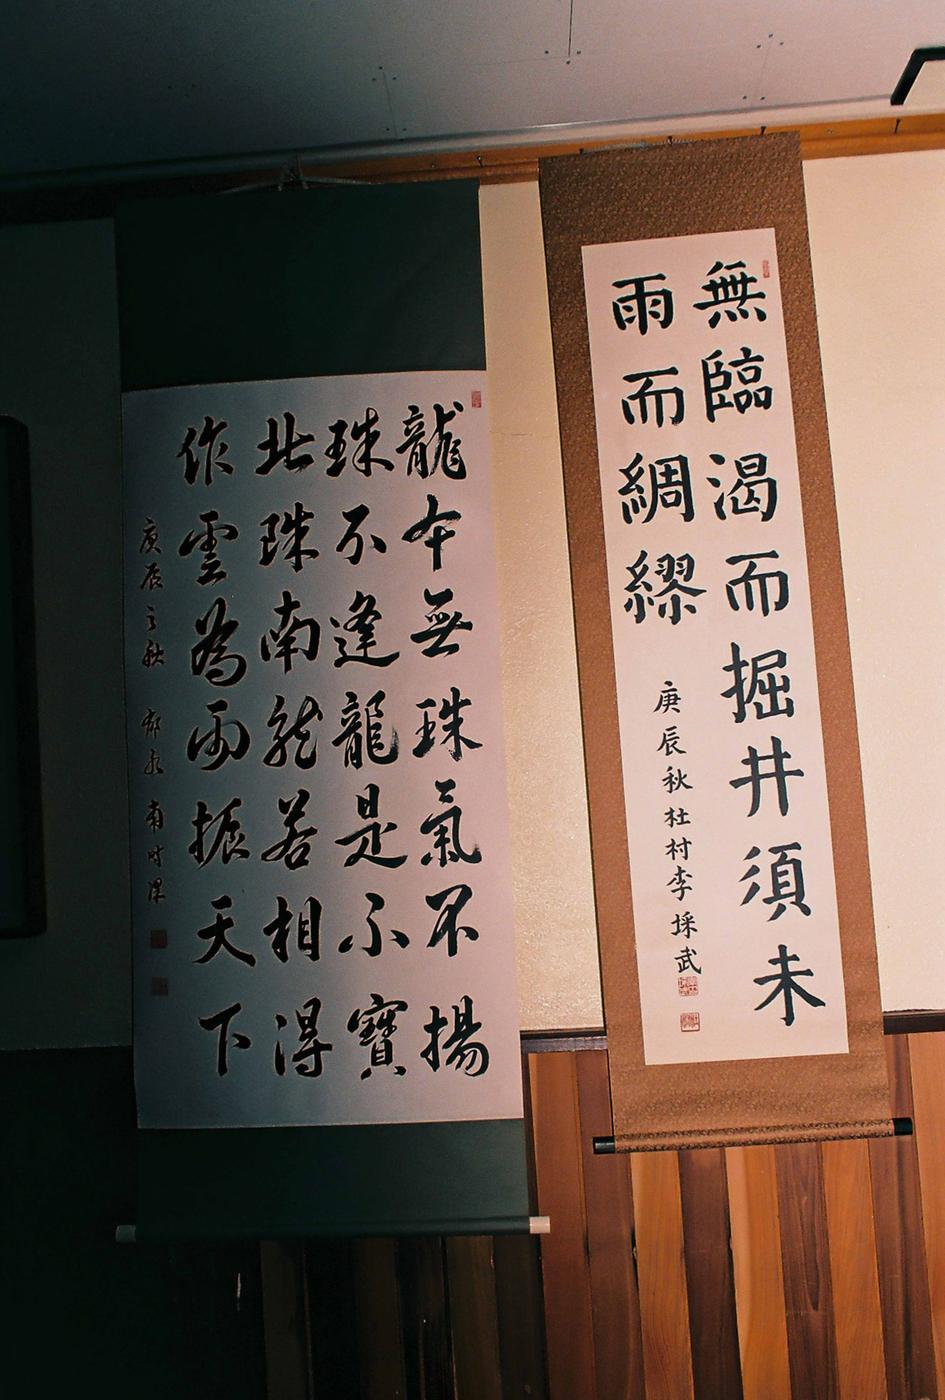 無臨渴而掘井須未
雨而綢繆
庚辰秋杜村李埰武
龍本無珠氣不揚
珠不逢龍是不寶
北珠南龍若相得
作雲為雨振天下
庚辰之秋